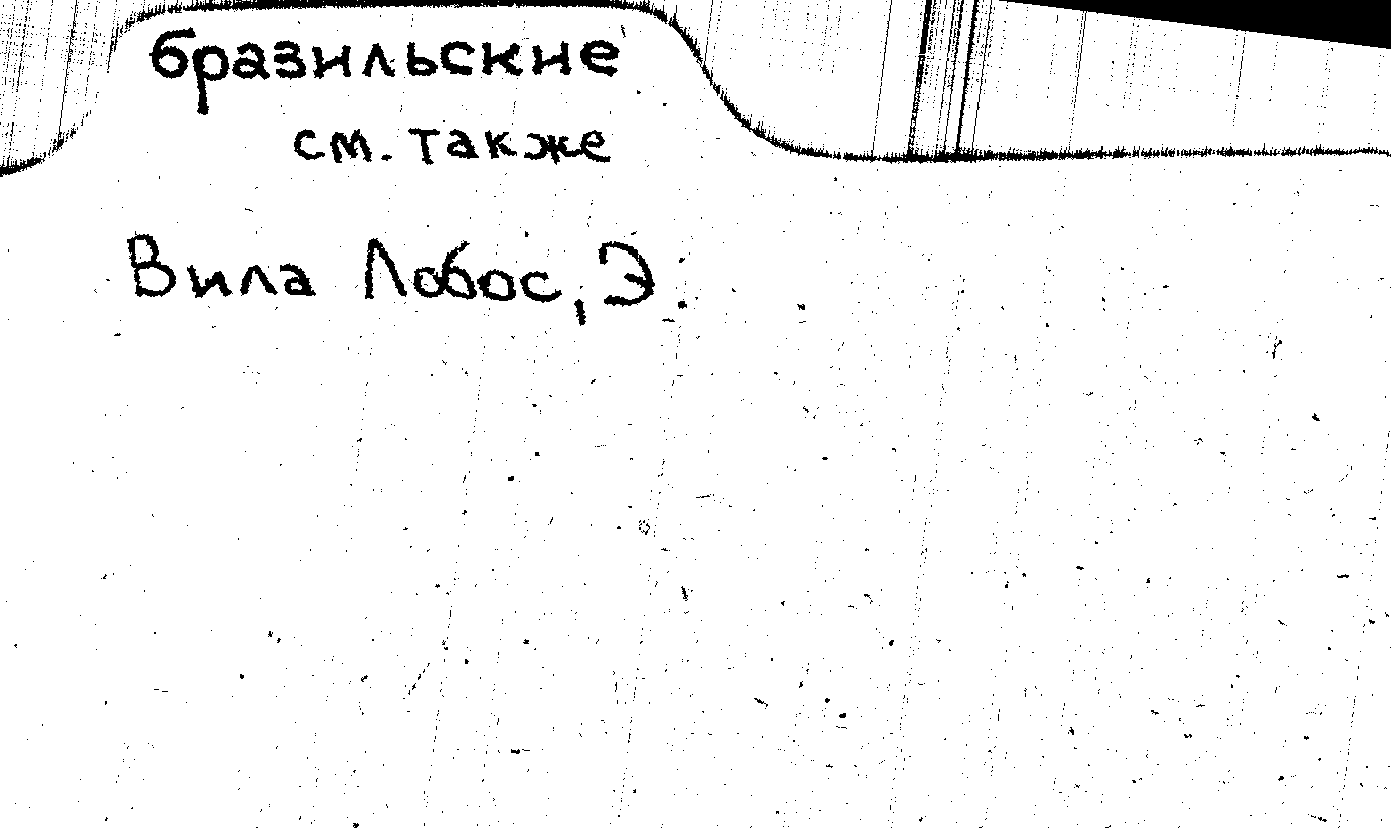 бразильские
см. также
Вила Лобос, Э.